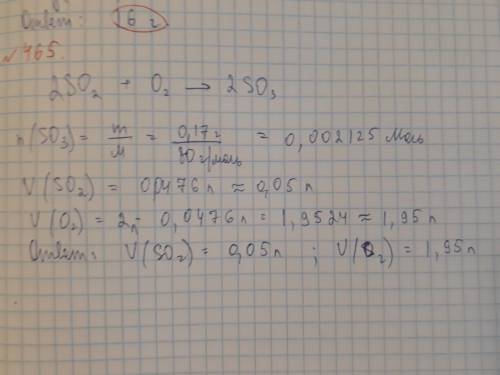 Ответ: 6 г
√465.
2SO₂ + O₂ → 2SO₃
n(SO₃) = m/M = 0,17г/80 г/моль = 0,002125 моль
V(SO₂) = 00476 л ≈ 0,05 л
V(O₂) = 2л - 0,0476 л = 1,9524 ≈ 1,95 л
Ответ: V(SO₂) = 0,05 л ; V(O₂) = 1,95 л